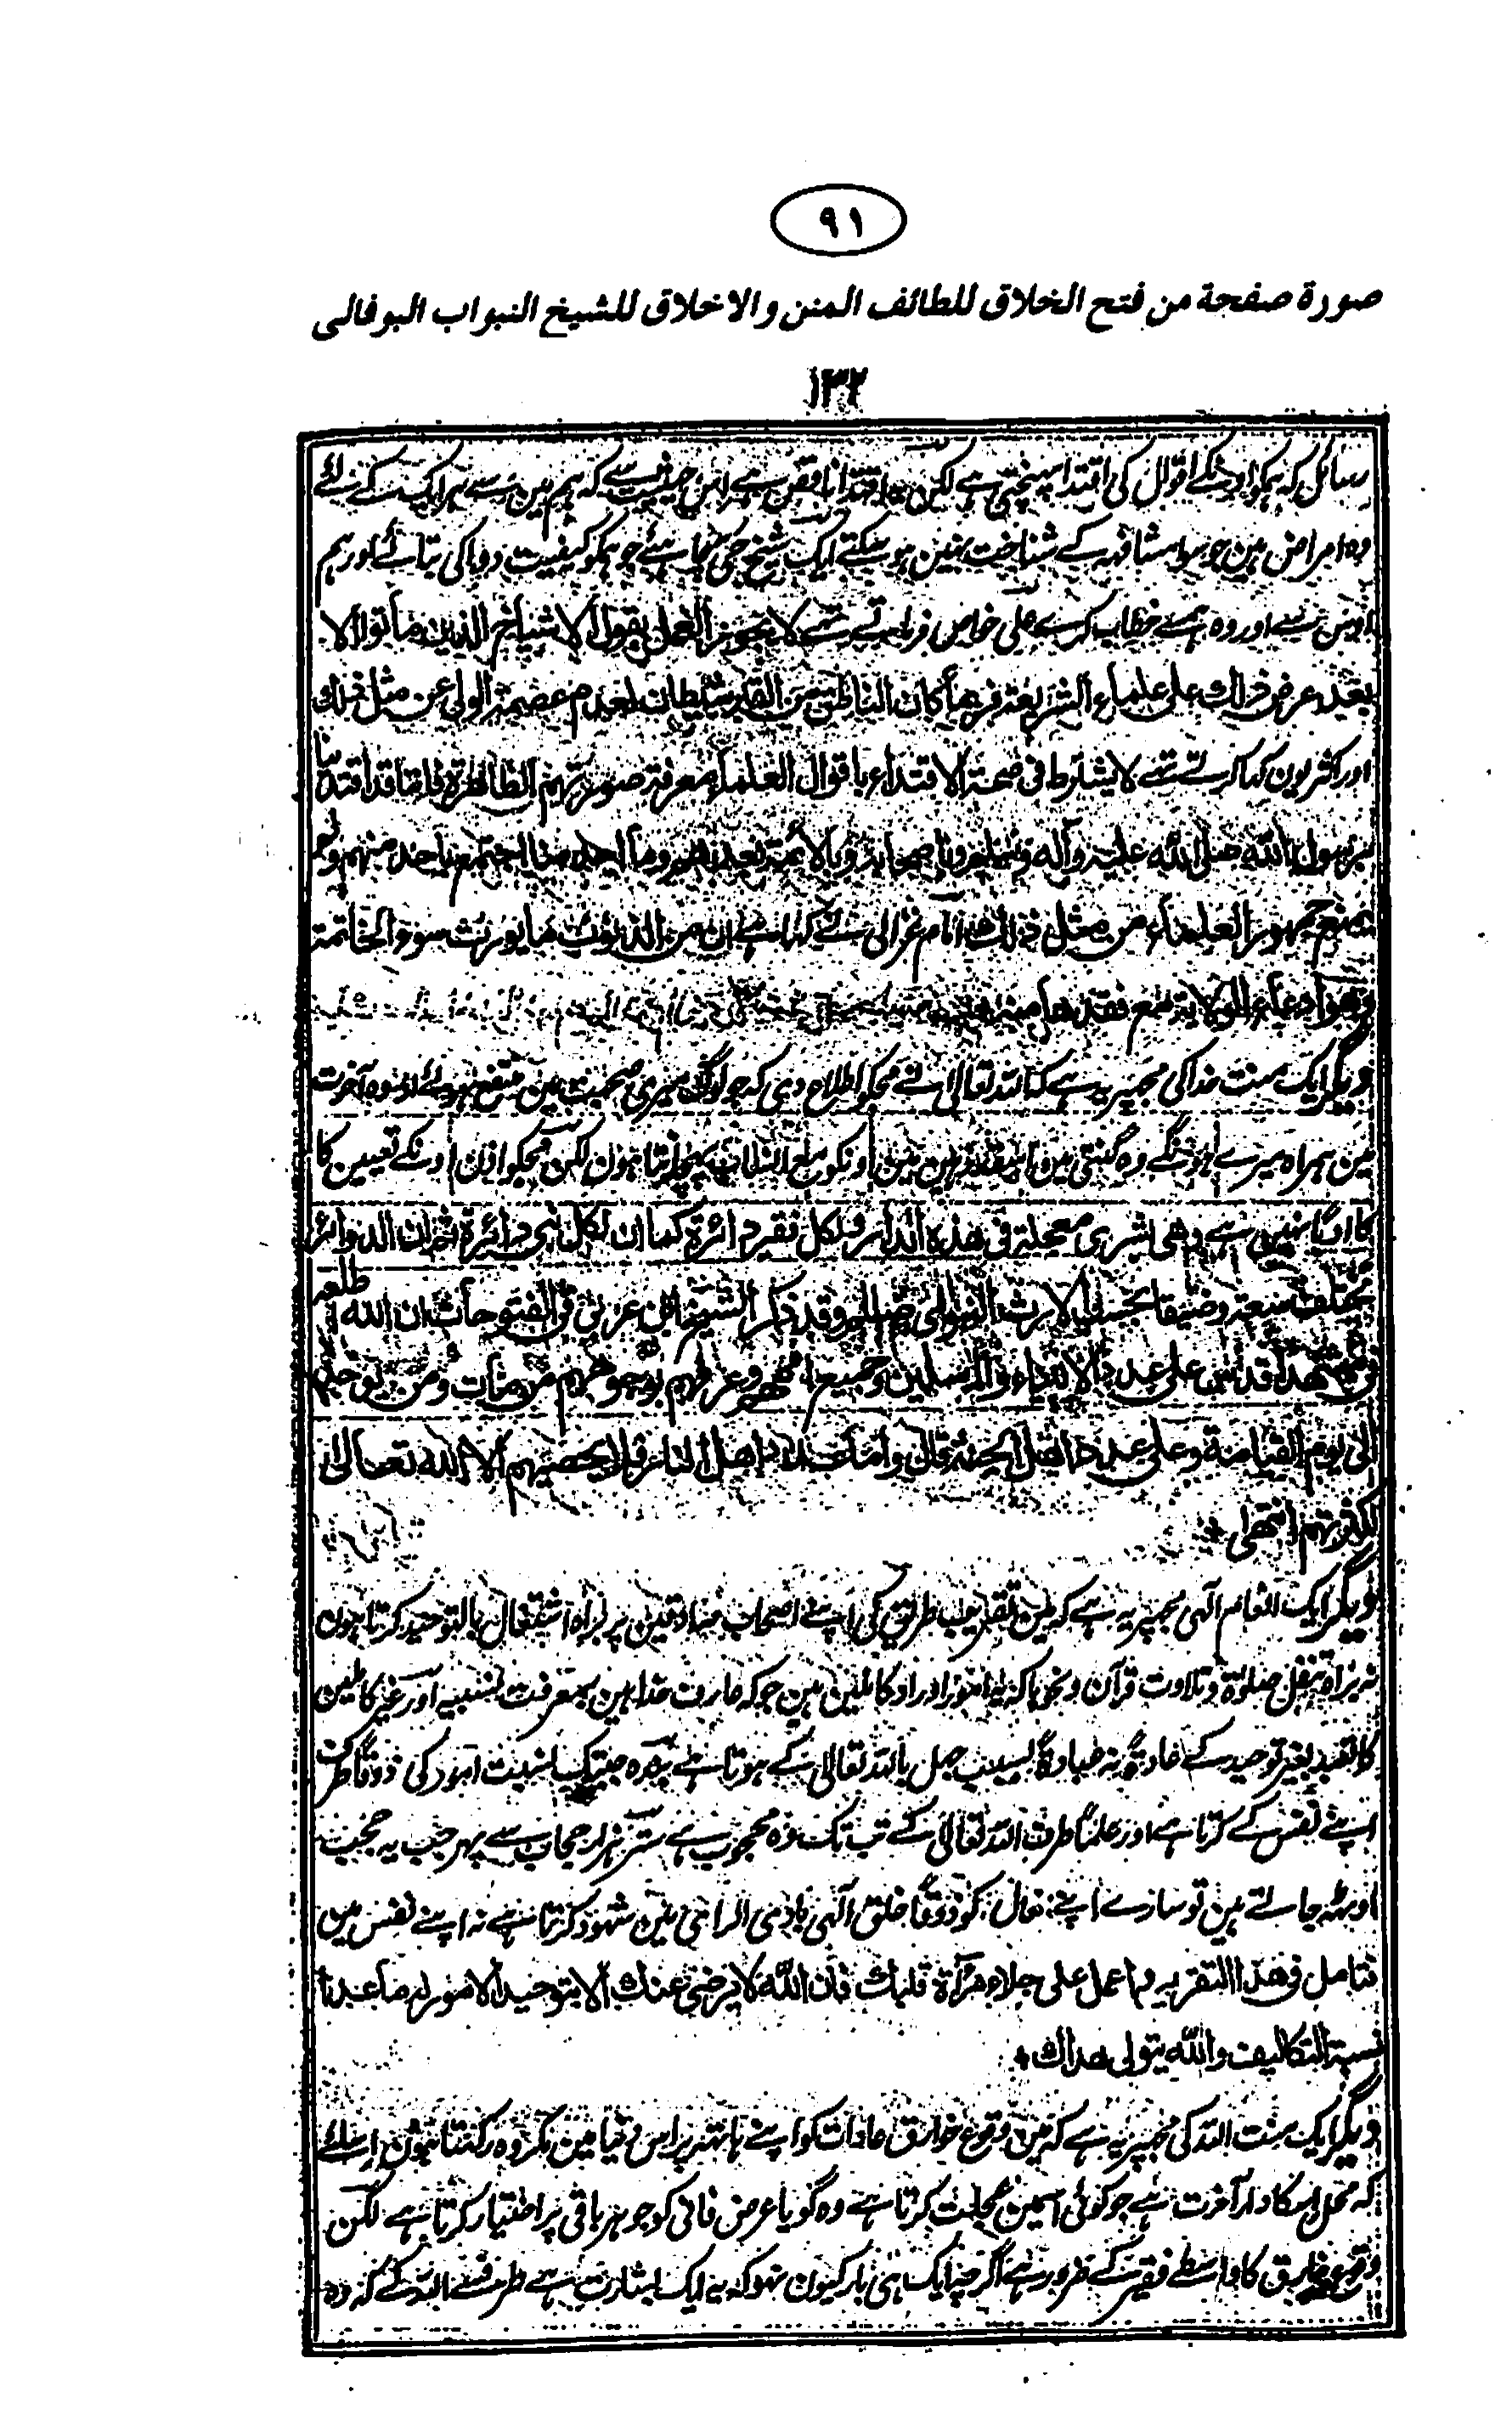 ٩١
صورة صفحة من فتح الخلاق للطائف المنن والاخلاق للشيخ النبواب البوفالى
١٣٢
رسائل کہ ہمکو اونکے اقوال کی اقتدا پہنچتی ہے لکن یہ اقتدا ناقص ہے اس حیثیت سے کہ ہم مین سے ہر ایک کے لئے
وہ امراض ہین جو بدون مشافہہ کے شناخت نہین ہو سکتے ایک شیخ حی چاہئے جو ہمکو کیفیت دوا کی بتائے اور ہم
اوس سے اور وہ ہمسے خطاب کرے علی خواص فرماتے تہے لا يجوز العمل بقول الاشياخ الذين ماتوا الا
بعد عرض ذلك على علماء الشريعة فربما كان الناطق من القبر شيطان لعدم عصمة الولى عن مثل ذلك
اور اکثر یون کہا کرتے تہے لا يشترط فى صحة الاقتداء باقوال العلماء معرفة صورتهم الظاهرة فاننا قد اقتدينا
برسول الله صلى الله عليه وآله وسلم وباصحابه وبالائمة بعدهم وما احد منا اجتمع باحد منهم ولم
يمنع جمهور العلماء من مثل ذلك امام غزالی نے کہا ہے ان من الذنوب ما يورث سوء الخاتمة
وهو ادعاء الولاية مع فقدها منه
دیگر ایک منت خدا کی مجہپر یہ ہے کہ اللہ تعالی نے مجکو اطلاع دی کہ جو لوگ میری صحبت مین منتفع ہوئے اور وہ آخرت
مین ہمراہ میرے ہونگے وہ گنتی مین اسقدر ہین مین اونکو پہچانتا ہون لکن مجکو اذن اونکے تعیین کا
نہین ہے وهى بشرى معجلة فى هذه الدار ولكل فقير دائرة كما ان لكل نبى دائرة ثم ان الدوائر
تختلف سعة وضيقا بحسب الارث وقد ذكر الشيخ ابن عربى فى الفتوحات ان الله اطلعه
على عدد الانبياء والمرسلين وجميع اممهم وعرفهم بوجوههم من مات ومن يوجد
الى يوم القيامة وعلى عدد اهل الجنة قال واما عدد اهل النار فلا يحصيهم الا الله تعالى
لكثرتهم انتهى
دیگر ایک انعام آلہی مجہپر یہ ہے کہ مین تقریب طریق کی اپنے اصحاب صادقین پر براہ اشتغال بالتوحید کرتا ہون
نہ براہ تنفل صلوة وتلاوت قرآن ونحوہا کہ یہ امور اوراد کاملین ہین جو کہ عارف خدا ہین بمعرفت نسبیہ اور غیر کاملین
کا تعبد بغیر توحید کے عادة نہ عبادة بسبب جہل باللہ تعالی کے ہوتا ہے بندہ جبتک نسبت امور کی ذوقا طرف
اپنے نفس کے کرتا ہے اور علما طرف اللہ تعالی کے تب تک وہ محجوب ہے ستر ہزار حجاب سے پہر جب یہ حجب
اوٹہہ جاتے ہین تو سارے اپنے افعال کو ذوقا خلق آلہی بادی الرای مین شہود کرتا ہے نہ اپنے نفس مین
فتامل فى هذا التقرير واعمل على جلاء مرآة قلبك فان الله لا يرضى عنك الا بتوحيد الامور له ما عدا
نسبة التكاليف والله يتولى هداك
دیگر ایک منت اللہ کی مجہپر یہ ہے کہ مین وقوع خوارق عادات کو اپنے ہاتہہ پر اس دنیا مین مکروہ رکہتا ہون اسلئے
کہ محل اسکا دار آخرت ہے جو کوئی اسمین عجلت کرتا ہے وہ گویا عرض فانی کو جوہر باقی پر اختیار کرتا ہے لکن
وقوع خوارق کا واسطے فقیر کے ضرور ہے اگرچہ ایک ہی بار کیون نہو کہ یہ ایک بشارت ہے طرف سے اللہ کے کہ وہ